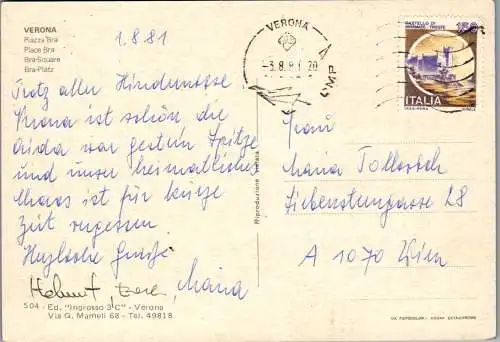 VERONA
Piazza Bra
Place Bra
Bra-Square
Bra-Platz
1.8.81
Trotz aller Hindernisse
Verona ist schön die
Aida war gestern Spitze
und unser heimatliches
Chaos ist für kurze
Zeit vergessen
Herzliche Grüße
Helmut, Maria
504 - Ed. "Ingrosso 3 C" - Verona
Via G. Mameli 68 - Tel. 49818
Riproduzione vietata
VERONA
-3.8.81 20
CASTELLO DI
MIRAMARE - TRIESTE
150
ITALIA
Frau
Maria
Siebensterngasse 28
A 1070 Wien